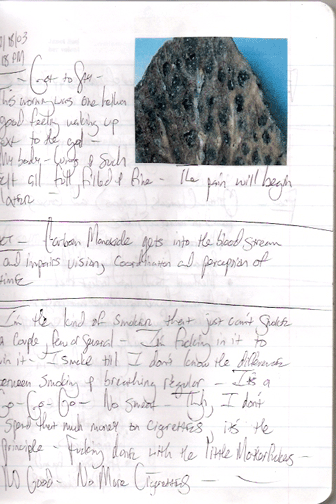 /18/03
:08 AM
to
This worm was one hellva
good feeling waking up
next to the gal -
this body - lungs & such
felt all full, filled & fine - The pain will begin
later
FACT - Carbon Monoxide gets into the blood stream
and impairs vision, coordination and perception of
time
I'm the kind of smoker that just can't smoke
a couple, few or several - I'm fucking in it to
win it - I smoke till I don't know the difference
between smoking & breathing regular - It's a
go-Go-Go - No sweat - Tho, I don't
spend that much money on cigarettes, it's the
principle - Fucking done with the little MotherFuckers -
Good - No More Cigarettes -